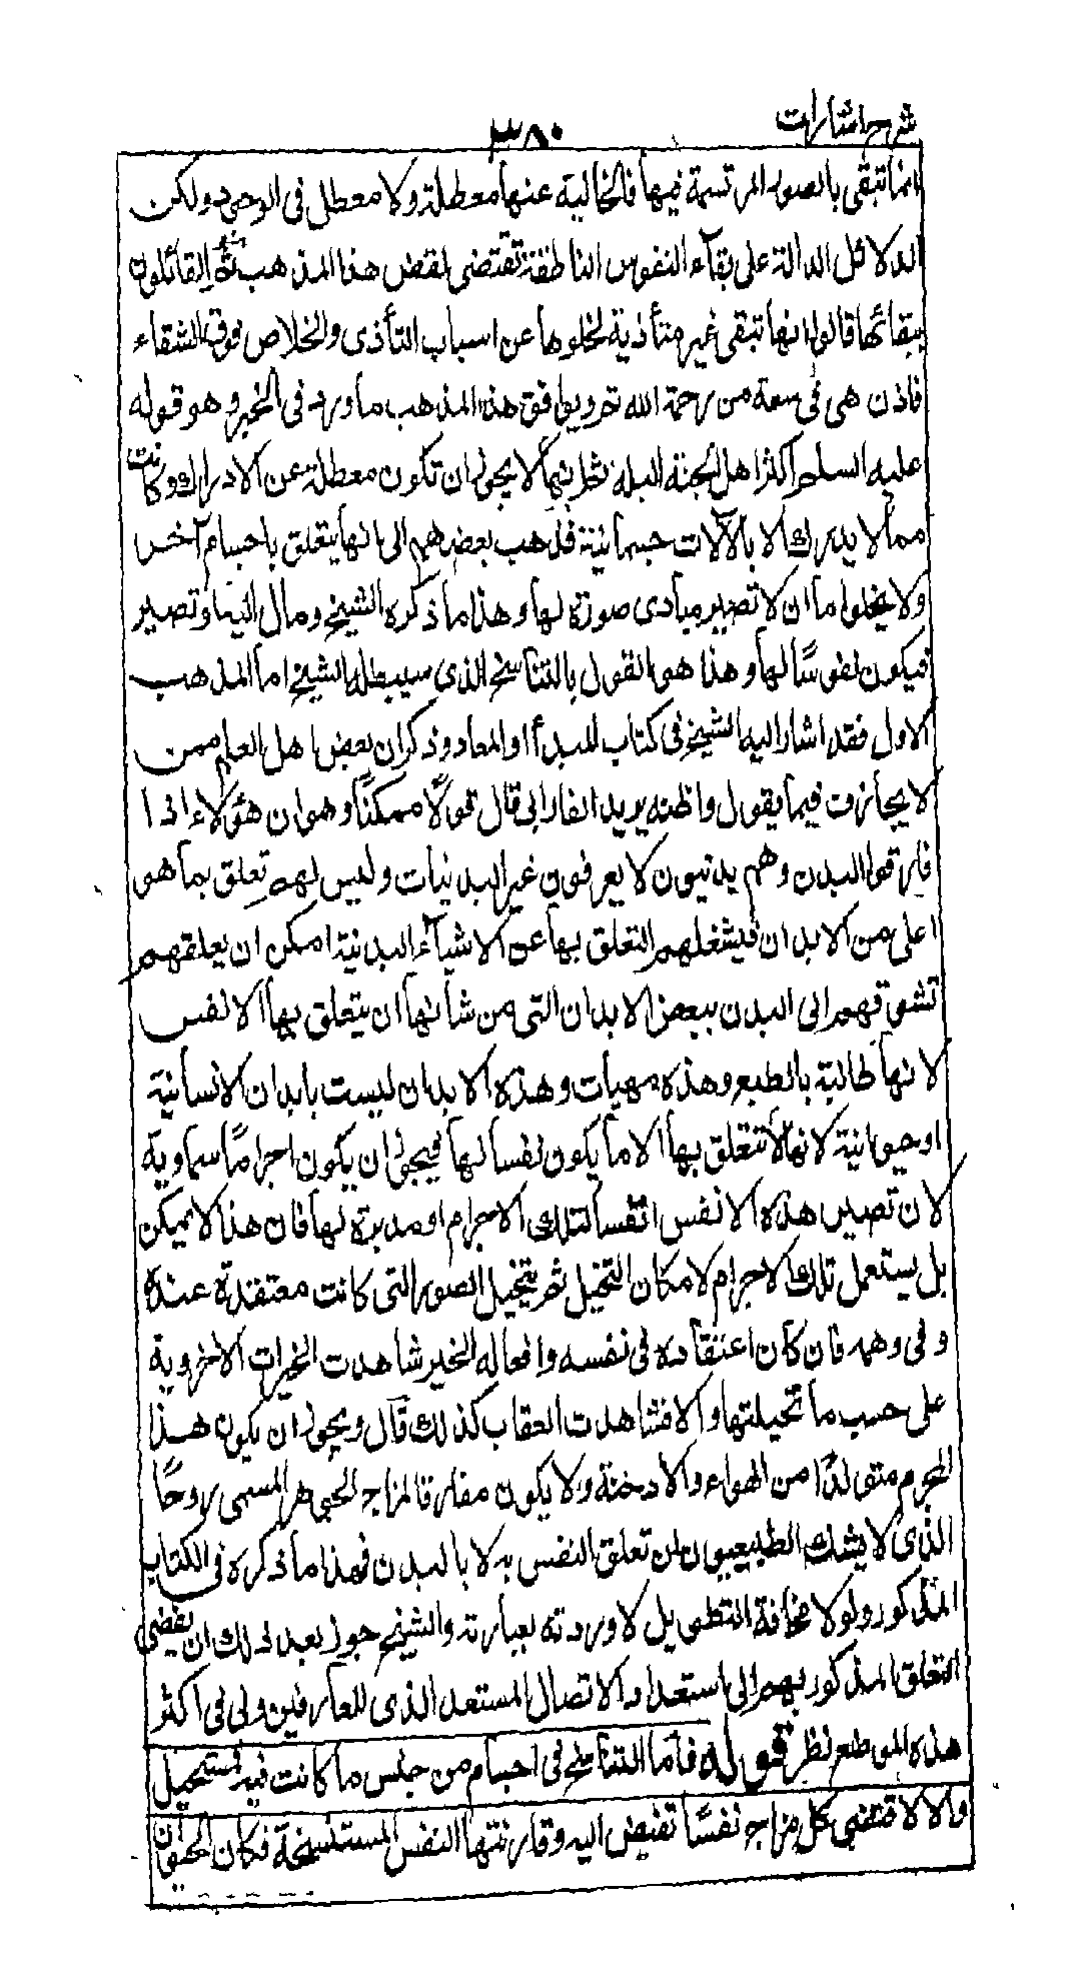 شرح اشارات
٣٨٠
انما تبقى بالصور المرتسمة فيها فالخالية عنها معطلة ولا معطل في الوجود ولكن
الدلائل الدالة على بقاء النفوس الناطقة تقتضى نقض هذا المذهب ثم القائلون
ببقائها قالوا انها تبقى غير متأذية لخلوها عن اسباب التأذى والخلاص فوق الشقاء
فاذن هى فى سعة من رحمة الله تع ويوافق هذا المذهب ما ورد فى الخبر وهو قوله
عليه السلم اكثر اهل الجنة البله ثم انها لا يجوز ان تكون معطلة عن الادراك وكانت
مما لا يدرك الا بالآلات جسمانية فذهب بعضهم الى انها يتعلق باجسام آخر
ولا يخلو اما ان لا تصير مبادى صورة لها وهذا ما ذكره الشيخ ومال اليها وتصير
فيكون نفوسًا لها وهذا هو القول بالتناسخ الذى سيبطله الشيخ اما المذهب
الاول فقد اشار اليه الشيخ فى كتاب المبدأ والمعاد وذكر ان بعض اهل العلم ممن
لا يجازف فيما يقول واظنه يريد الفارابى قال قولًا ممكنًا وهو ان هؤلاء اذا
فارقوا البدن وهم بدنيون لا يعرفون غير البدنيات وليس لهم تعلق بما هو
اعلى من الابدان فيشغلهم التعلق بها عن الاشياء البدنية امكن ان يعلقهم
تشوقهم الى البدن ببعض الابدان التى من شأنها ان يتعلق بها الانفس
لانها طالبة بالطبع وهذه مهيات وهذه الابدان ليست بابدان الانسانية
او حيوانية لانها لا تتعلق بها الا ما يكون نفسا لها فيجوز ان يكون اجرامًا سماوية
لا ان تصير هذه الانفس انفسا لتلك الاجرام او مدبرة لها فان هذا لا يمكن
بل يستعمل تلك الاجرام لامكان التخيل ثم يتخيل الصور التى كانت معتقدة عنده
وفى وهمه فان كان اعتقاده فى نفسه وافعاله الخير شاهدت الخيرات الاخروية
على حسب ما تخيلتها والا فشاهدت العقاب كذلك قال ويجوز ان يكون هذا
الجرم متولدًا من الهواء والادخنة ولا يكون مفارقا لمزاج الجوهر المسمى روحًا
الذى لا يشك الطبيعيون ان تعلق النفس به لا بالبدن فهذا ما ذكره فى الكتاب
المذكور ولولا مخافة التطويل لاوردته بعبارته والشيخ جوز بعد ذلك ان يفضى
التعلق المذكور بهم الى استعداد الاتصال المستعد الذى للعارفين ولى فى اكثر
هذه المواضع نظر قوله فاما التناسخ فى اجسام من جنس ما كانت فيه فمستحيل
والا لاقتضى كل مزاج نفسًا تفيض اليه وقارنتها النفس المستنسخة فكان لحيوان